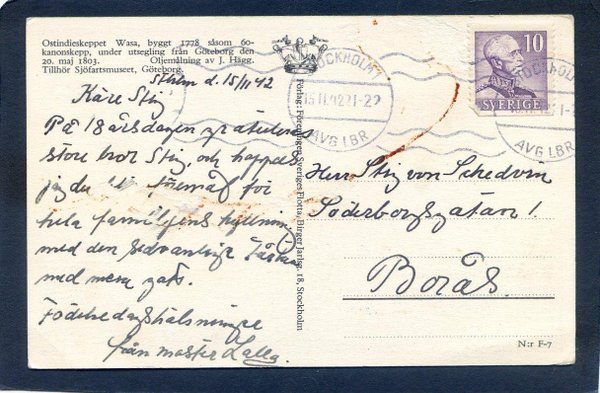 Ostindieskeppet Wasa, byggt 1778 såsom 60-
kanonskepp, under utsegling från Göteborg den
20. maj 1803. Oljemålning av J. Hägg.
Tillhör Sjöfartsmuseet, Göteborg.
Sthlm d. 15/11 42
Käre Stig
På 18 årsdagen gratuleras
store bror Stig, och hoppas
jag du föremål för
hela familjens hyllning
med den sedvanliga
med mera
Födelsedagshälsningar
från moster Lalla.
Förlag: Föreningen Sveriges Flotta, Birger Jarlsg. 18, Stockholm
STOCKHOLM 1
15.11.42 21-22
AVG LBR
10
SVERIGE
STOCKHOLM
AVG LBR
Herr Stig von Schedvin
Söderborgsgatan 1.
Borås.
N:r F-7